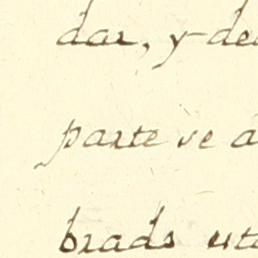 dar, y de
parte se a
brads uta